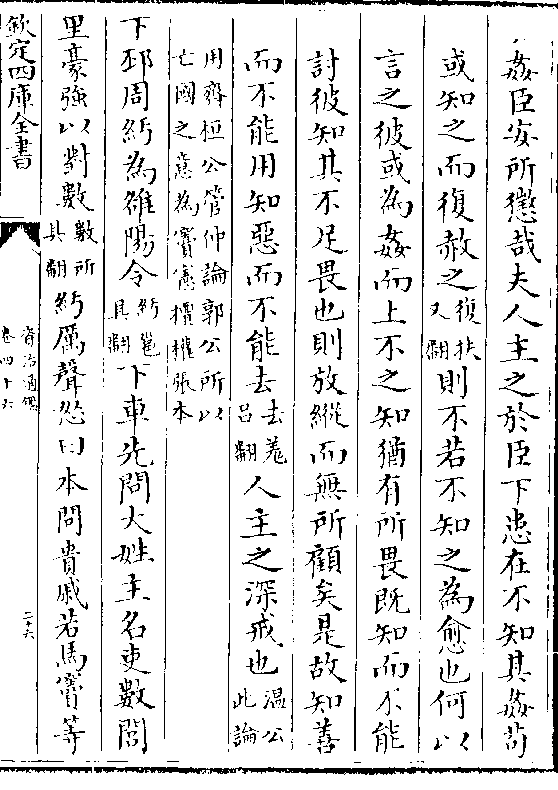 姦臣安所懲哉夫人主之於臣下患在不知其姦苟
或知之而復赦之復扶又翻則不若不知之為愈也何以
言之彼或為姦而上不之知猶有所畏既知而不能
討彼知其不足畏也則放縱而無所顧矣是故知善
而不能用知惡而不能去去羗呂翻人主之深戒也温公此論
用齊桓公管仲論郭公所以亡國之意為竇憲擅權張本
下邳周紆為雒陽令紆邕具翻下車先問大姓主名吏數閭
里豪強以對數數所具翻紆厲聲怒曰本問貴戚若馬竇等
欽定四庫全書
資治通鑑
卷四十六
二十六